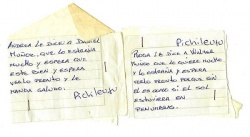 ANDREA LE DICE A DANIEL
MUÑOZ, QUE LO EXTRAÑA
MUCHO Y ESPERA QUE
ESTE BIEN Y ESPERA
VERLO PRONTO Y LE
MANDA SALUDO.
Pichilemu
Pichilemu
ROSA LE DICE A
QUE LO QUIERE MUCHO
Y LO EXTRAÑA Y ESPERA
VERLO PRONTO PORQUE SIN
EL ES COMO SI EL SOL
ESTUVIERA EN
PENUMBRAS.